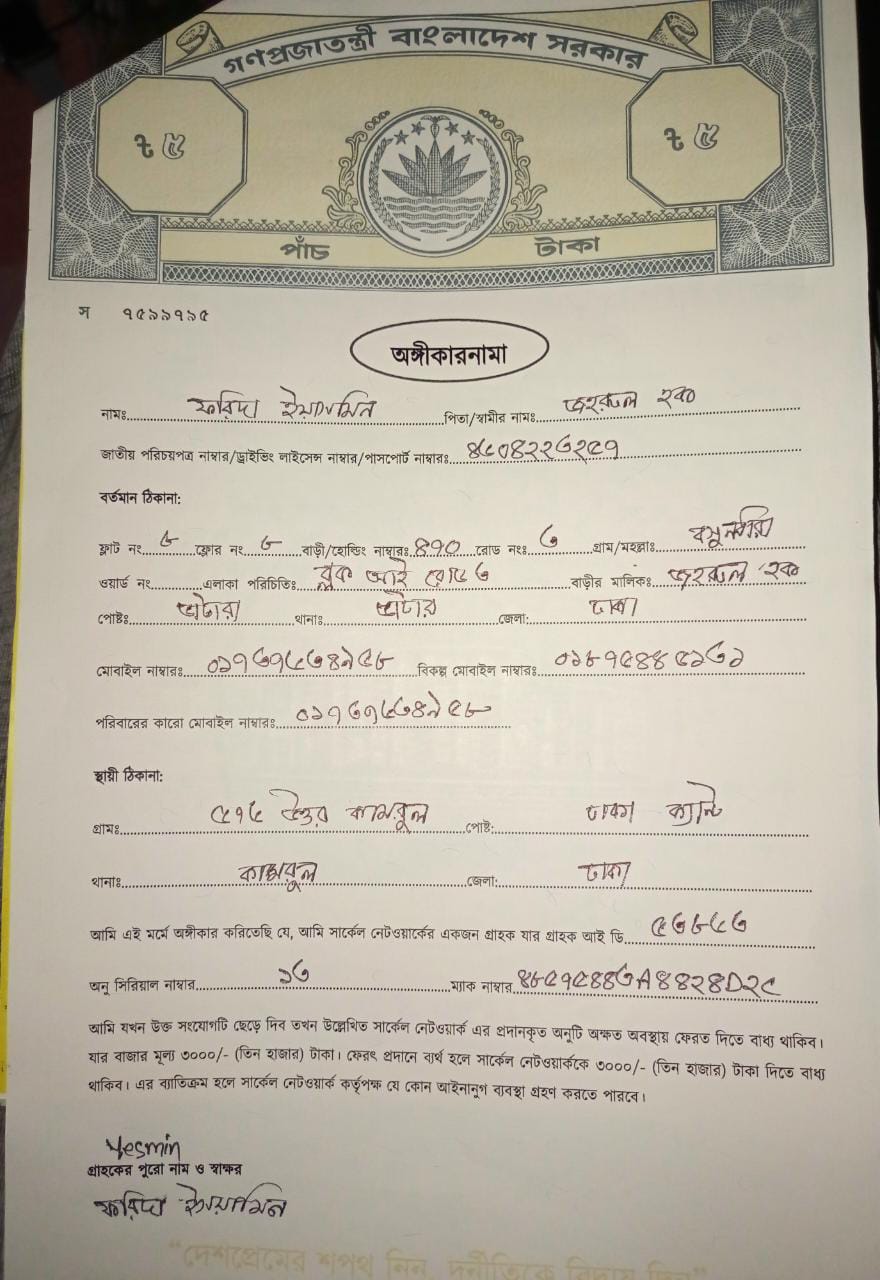 গণপ্রজাতন্ত্রী বাংলাদেশ সরকার
৳ ৫ ৳ ৫
পাঁচ টাকা
স ৭৫৯৯৭৯৫
অঙ্গীকারনামা
নামঃ ফরিদা ইয়াসমিন পিতা/স্বামীর নামঃ জহুরুল হক
জাতীয় পরিচয়পত্র নাম্বার/ড্রাইভিং লাইসেন্স নাম্বার/পাসপোর্ট নাম্বারঃ
বর্তমান ঠিকানা:
ফ্লাট নং ফ্লোর নং বাড়ী/হোল্ডিং নাম্বারঃ ৪৭০ রোড নংঃ ৬ গ্রাম/মহল্লাঃ বসুন্ধরা
ওয়ার্ড নং এলাকা পরিচিতিঃ ব্লক আই রোড ৬ বাড়ীর মালিকঃ জহুরুল হক
পোষ্টঃ ভাটারা থানাঃ ভাটারা জেলা: ঢাকা
মোবাইল নাম্বারঃ বিকল্প মোবাইল নাম্বারঃ
পরিবারের কারো মোবাইল নাম্বারঃ
স্থায়ী ঠিকানা:
গ্রামঃ উত্তর কাফরুল পোষ্ট: ঢাকা ক্যান্ট
থানাঃ কাফরুল জেলা: ঢাকা
আমি এই মর্মে অঙ্গীকার করিতেছি যে, আমি সার্কেল নেটওয়ার্কের একজন গ্রাহক যার গ্রাহক আই ডি
অনু সিরিয়াল নাম্বার ১৬ ম্যাক নাম্বার
আমি যখন উক্ত সংযোগটি ছেড়ে দিব তখন উল্লেখিত সার্কেল নেটওয়ার্ক এর প্রদানকৃত অনুটি অক্ষত অবস্থায় ফেরত দিতে বাধ্য থাকিব।
যার বাজার মূল্য ৩০০০/- (তিন হাজার) টাকা। ফেরৎ প্রদানে ব্যর্থ হলে সার্কেল নেটওয়ার্ককে ৩০০০/- (তিন হাজার) টাকা দিতে বাধ্য
থাকিব। এর ব্যতিক্রম হলে সার্কেল নেটওয়ার্ক কর্তৃপক্ষ যে কোন আইনানুগ ব্যবস্থা গ্রহণ করতে পারবে।
Yesmin
গ্রাহকের পুরো নাম ও স্বাক্ষর
ফরিদা ইয়াসমিন
"দেশপ্রেমের শপথ নিন, দুর্নীতিকে বিদায় দিন"